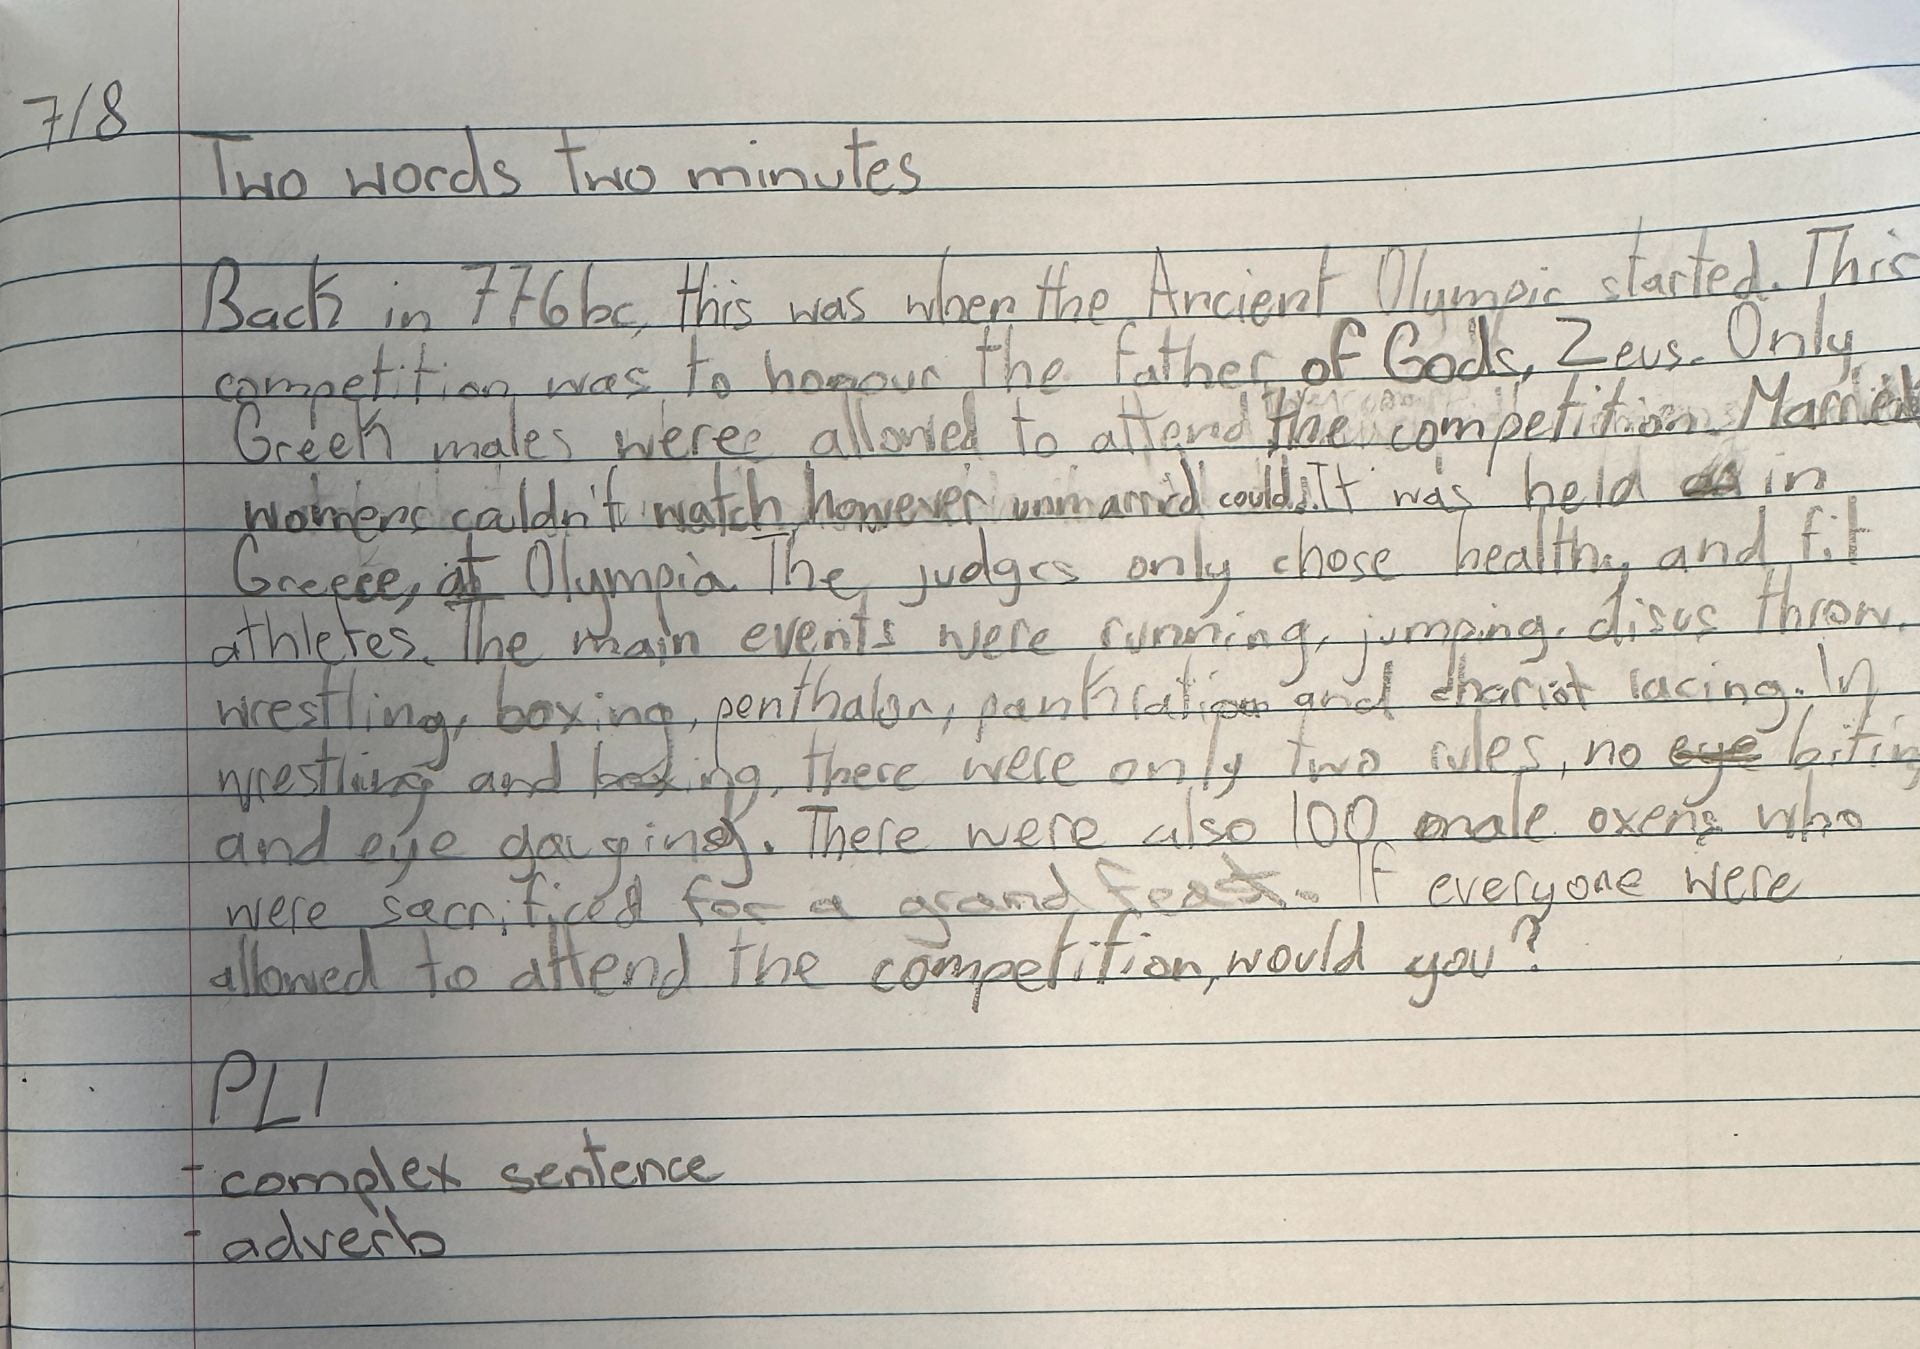 7/8
Two words two minutes
Back in 776bc, this was when the Ancient Olympic started. This
competition was to honour the father of Gods, Zeus. Only
Greek males weree allowed to attend the competition. Married
womens couldn't watch, however unmarried could. It was held in
Greece, at Olympia. The judges only chose healthy and fit
athletes. The main events were running, jumping, discus throw,
wrestling, boxing, penthalon, and chariot racing. In
wrestling and boxing, there were only two rules, no eye biting
and eye gauging. There were also 100 male oxens who
were sacrificed for a grand feast. If everyone were
allowed to attend the competition, would you?
PLI
- complex sentence
- adverb